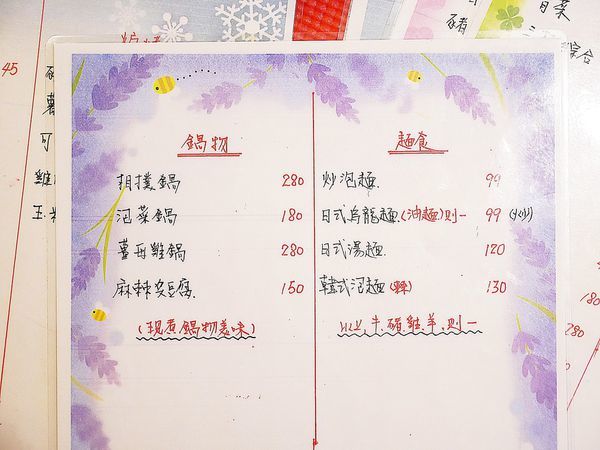 鍋物
相撲鍋 280
泡菜鍋 180
薑母雞鍋 280
麻辣臭豆腐. 150
(現煮.鍋物美味)
麵食
炒泡麵. 99
日式烏龍麵.(油麵)則一 99 (炒)
日式湯麵. 120
韓式泡麵(辣) 130
以上,牛.豬.雞.羊.則一
45
可
雞
玉米
豬
綜合
180
280